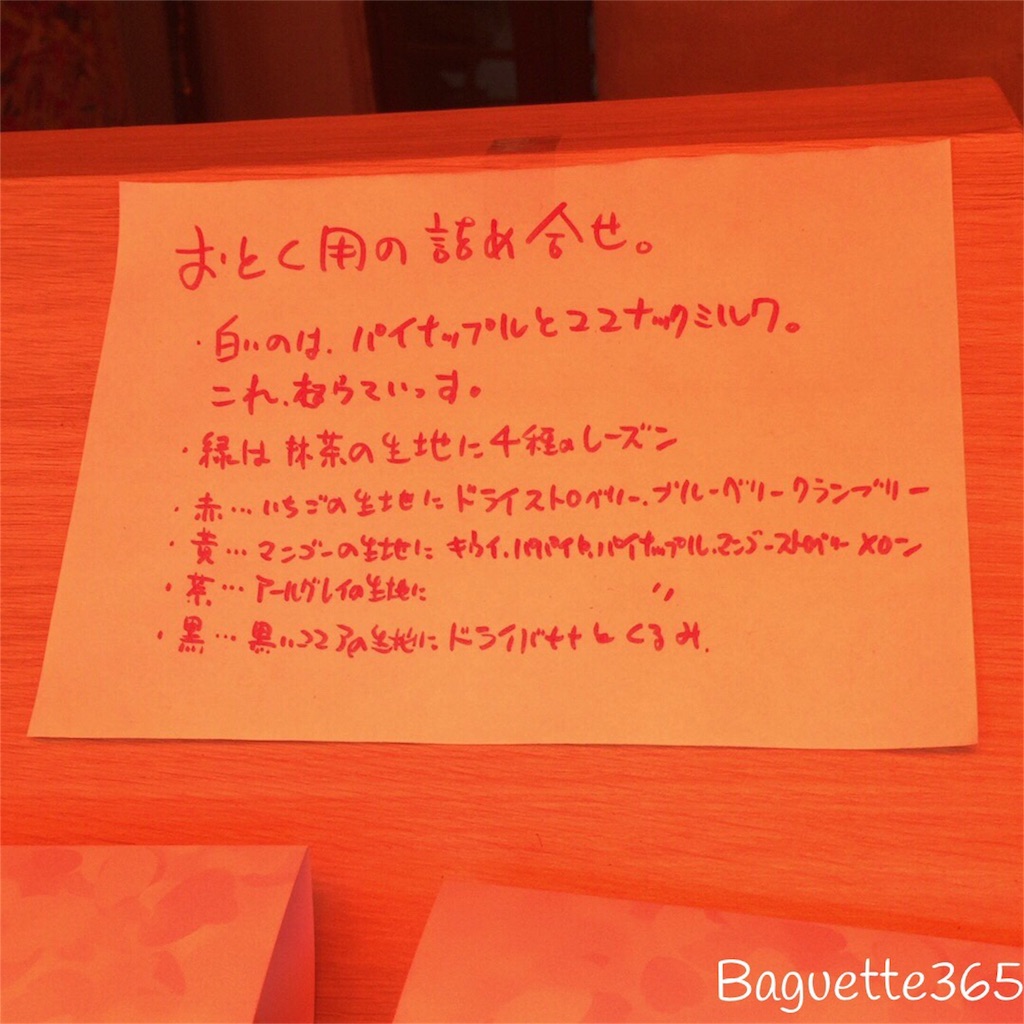 おとく用の詰め合せ。
・白いのは、パイナップルとココナックミルク。
これ、わらていっす。
・緑は抹茶の生地に4種のレーズン
・赤…いちごの生地にドライストロベリー、ブルーベリークランブリー
・黄…マンゴーの生地にキウイ、パパイヤ、パイナップル、マンゴーストロベリーメロン
・茶…アールグレイの生地に 〃
・黒…黒いココアの生地にドライバナナとくるみ.
Baguette365